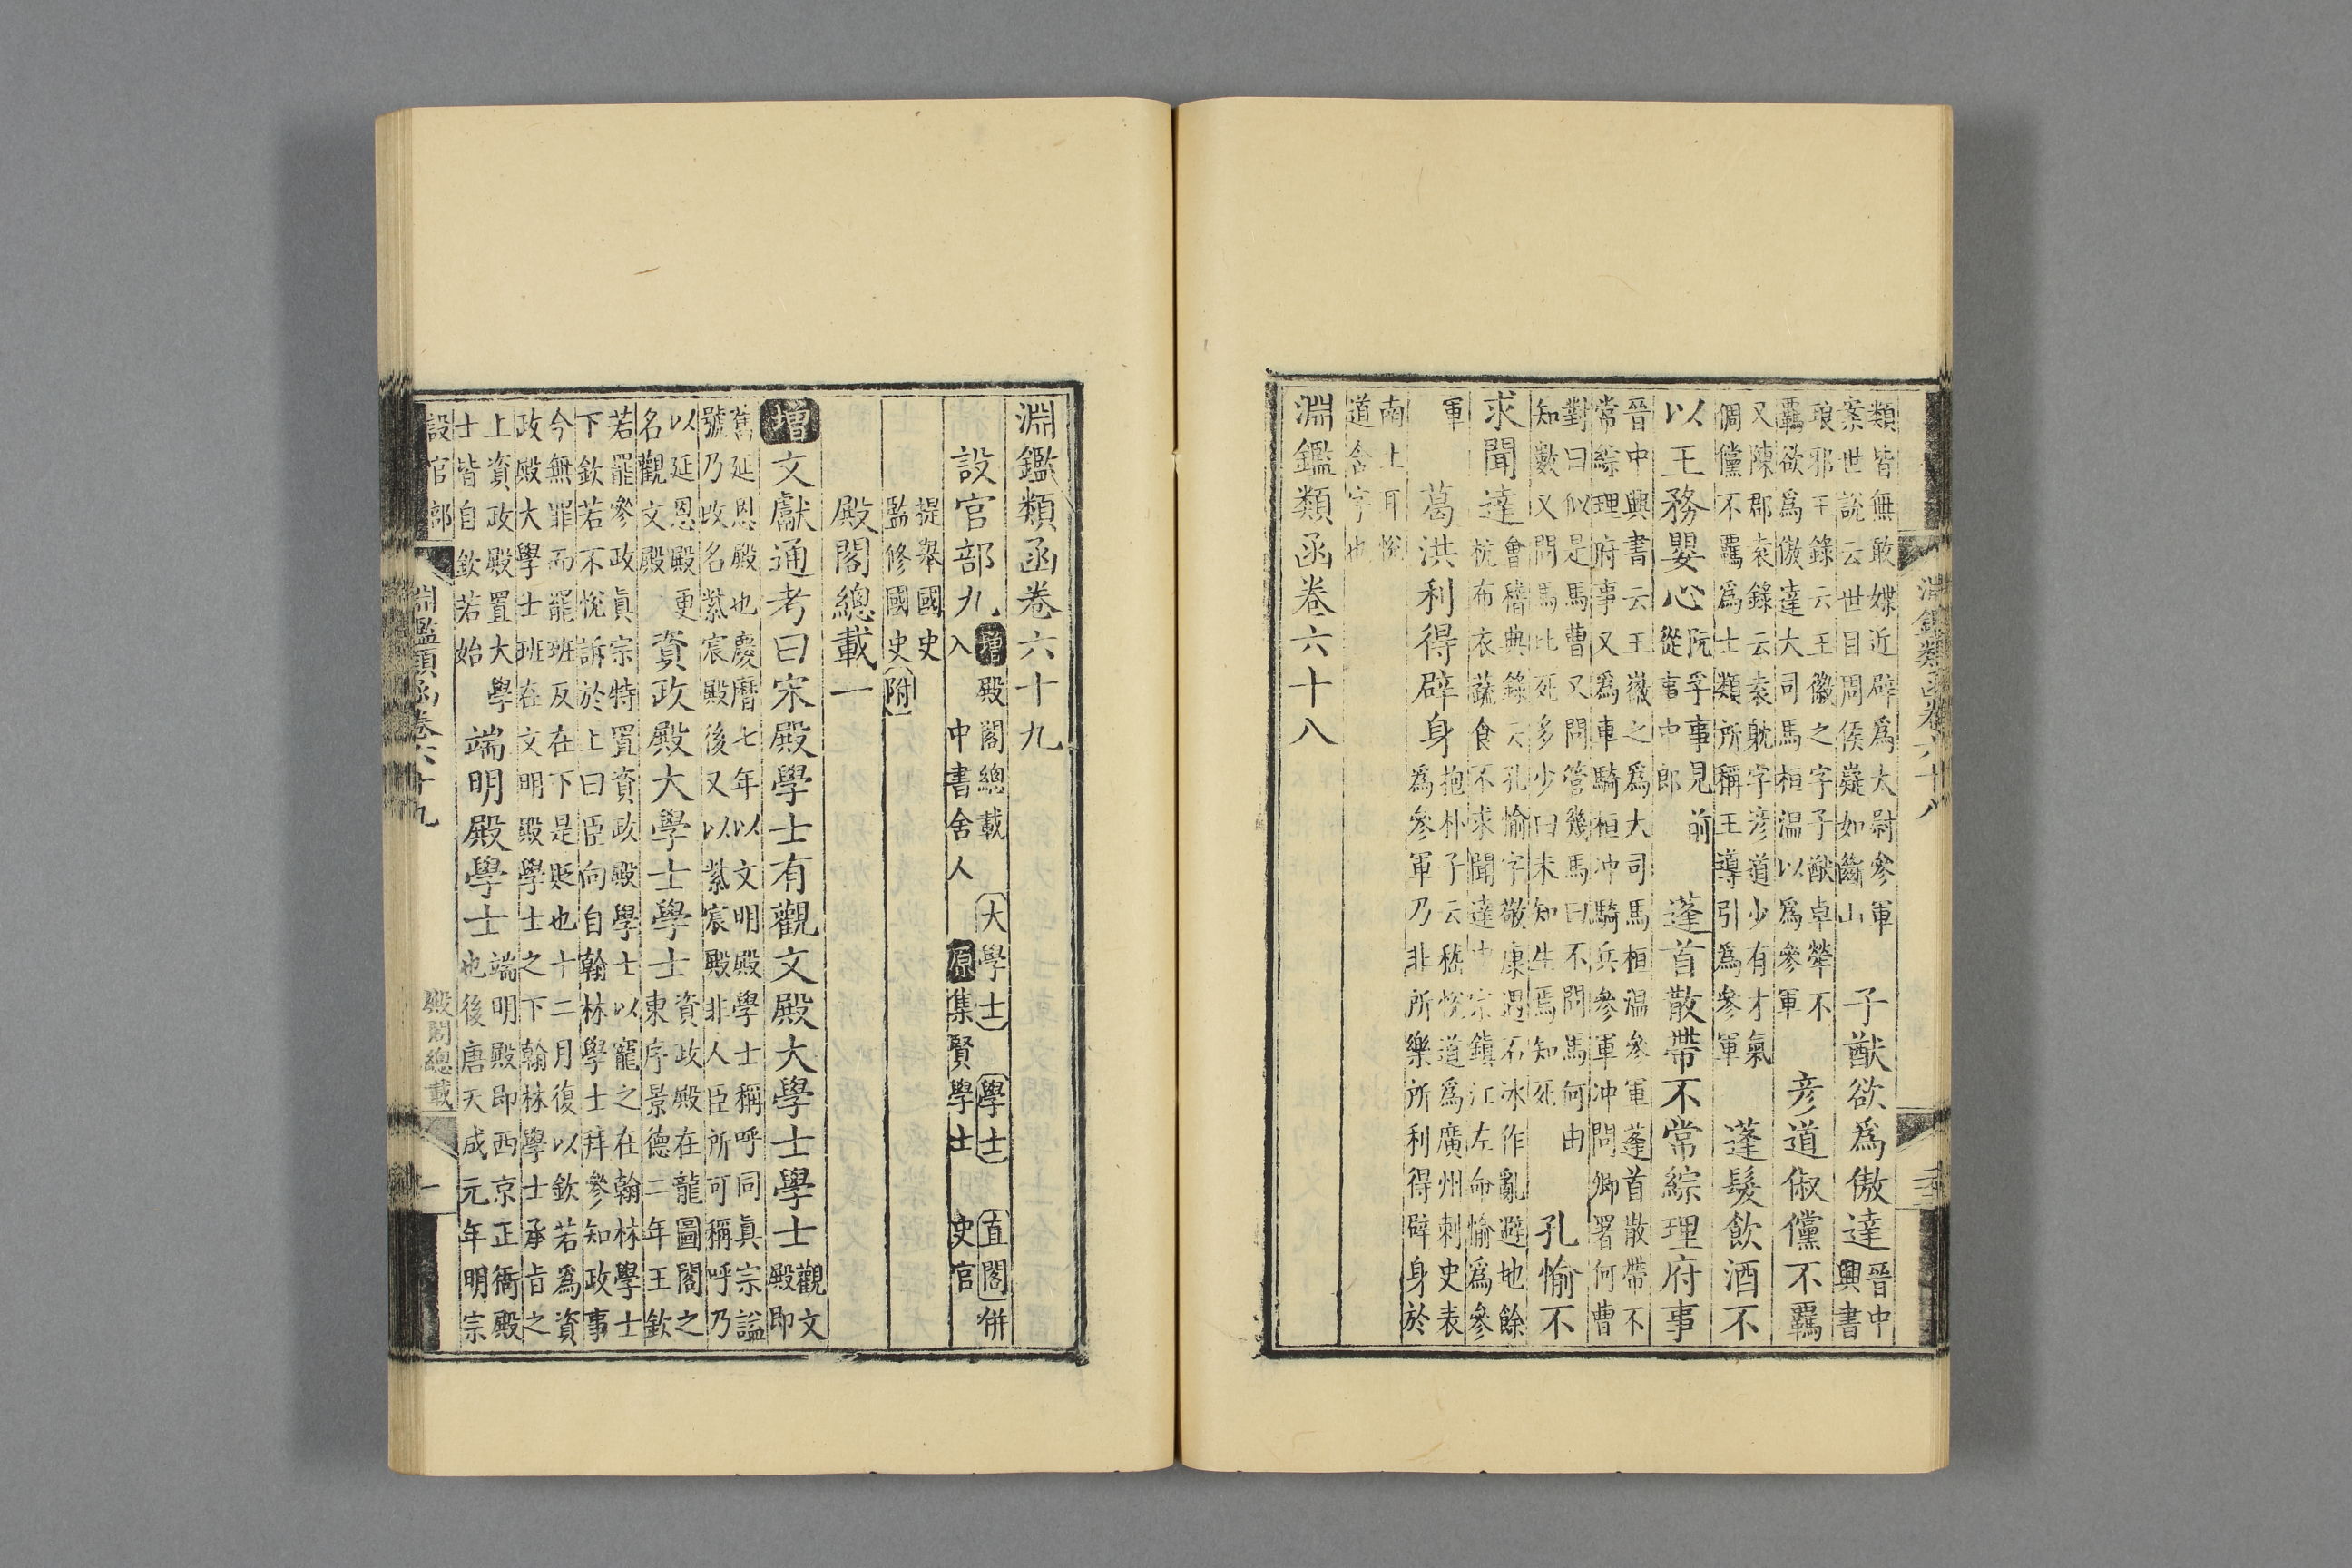 淵鑑類函卷六十八
類皆無敢媟近辟爲太尉參軍
案世說云世目周侯嶷如斷山
子猷欲爲傲達
晉中
興書
琅邪王錄云王徽之字子猷卓犖不
羈欲爲傲達大司馬桓温以爲參軍
彥道俶儻不羈
又陳郡袁錄云袁躭字彥道少有才氣
倜儻不羈爲士類所稱王導引爲參軍
蓬髮飲酒不
以王務嬰心
阮孚事見前
從事中郎
蓬首散帶不常綜理府事
晉中興書云王徽之爲大司馬桓温參軍蓬首散帶不
常綜理府事又爲車騎桓冲騎兵參軍冲問卿署何曹
對曰似是馬曹又問管幾馬曰不問馬何由
知數又問馬比死多少曰未知生焉知死
孔愉不
求聞達
會稽典錄云孔愉字敬康遇石冰作亂避地餘
杭布衣蔬食不求聞達中宗鎮江左命愉爲參
軍
葛洪利得辟身
抱朴子云嵇悅道爲廣州刺史表
爲參軍乃非所樂所利得辟身於
南土耳悅
道含字也
淵鑑類函卷六十八
淵鑑類函卷六十九
設官部九
增殿閣總載 大學士 學士 直閣併
入 中書舍人 原集賢學士 史官
提舉國史
監修國史附
殿閣總載一
增文獻通考曰宋殿學士有觀文殿大學士學士
觀文
殿即
舊延恩殿也慶曆七年以文明殿學士稱呼同眞宗謚
號乃改名紫宸殿後又以紫宸殿非人臣所可稱呼乃
以延恩殿更
名觀文殿
資政殿大學士學士
資政殿在龍圖閣之
東序景德二年王欽
若罷參政眞宗特置資政殿學士以寵之在翰林學士
下欽若不悅訴於上曰臣向自翰林學士拜參知政事
今無罪而罷班反在下是貶也十二月復以欽若爲資
政殿大學士班在文明殿學士之下翰林學士承旨之
上資政殿置大學
士皆自欽若始
端明殿學士
端明殿即西京正衙殿
也後唐天成元年明宗
設官部
淵鑑類函卷六十九
殿閣總載
一